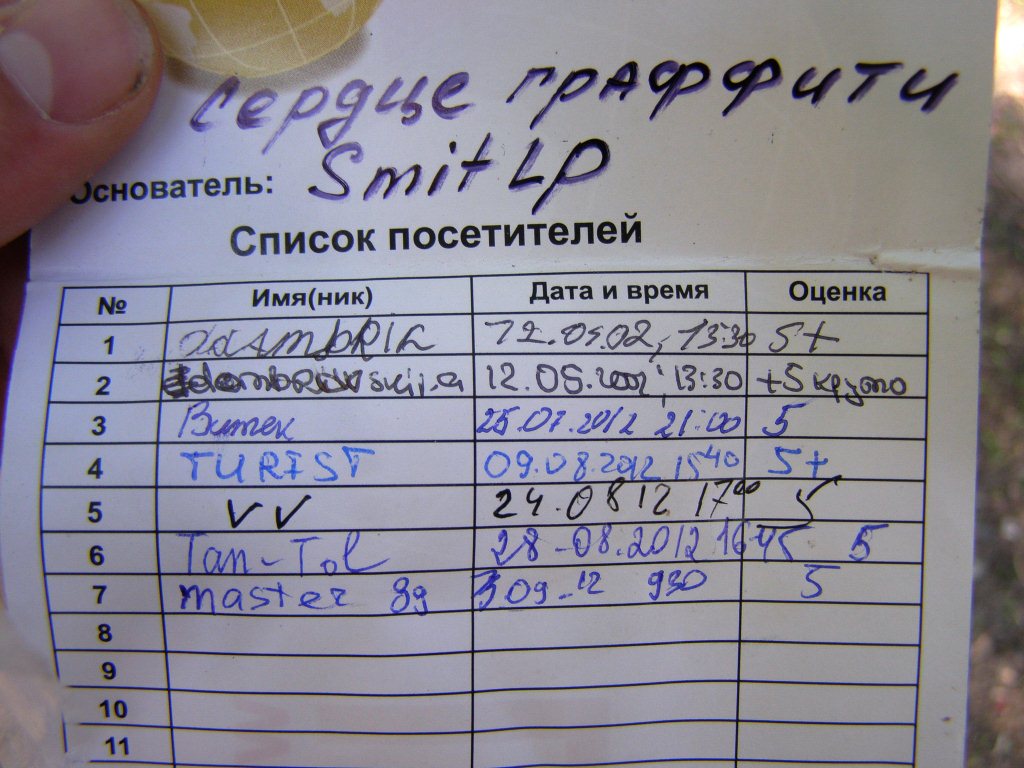 Сердце граффити
Основатель: Smit LP
Список посетителей
№ Имя(ник) Дата и время Оценка
1 13:30 5+
2 13:30 +5 круто
3 Витек 25.07.2012 21:00 5
4 TURIST 09.08.2012 15 40 5+
5 VV 24.08 12 17 00 5
6 Tan-Tol 28-08.2012 16 45 5
7 master 89 09-12 930 5
8
9
10
11